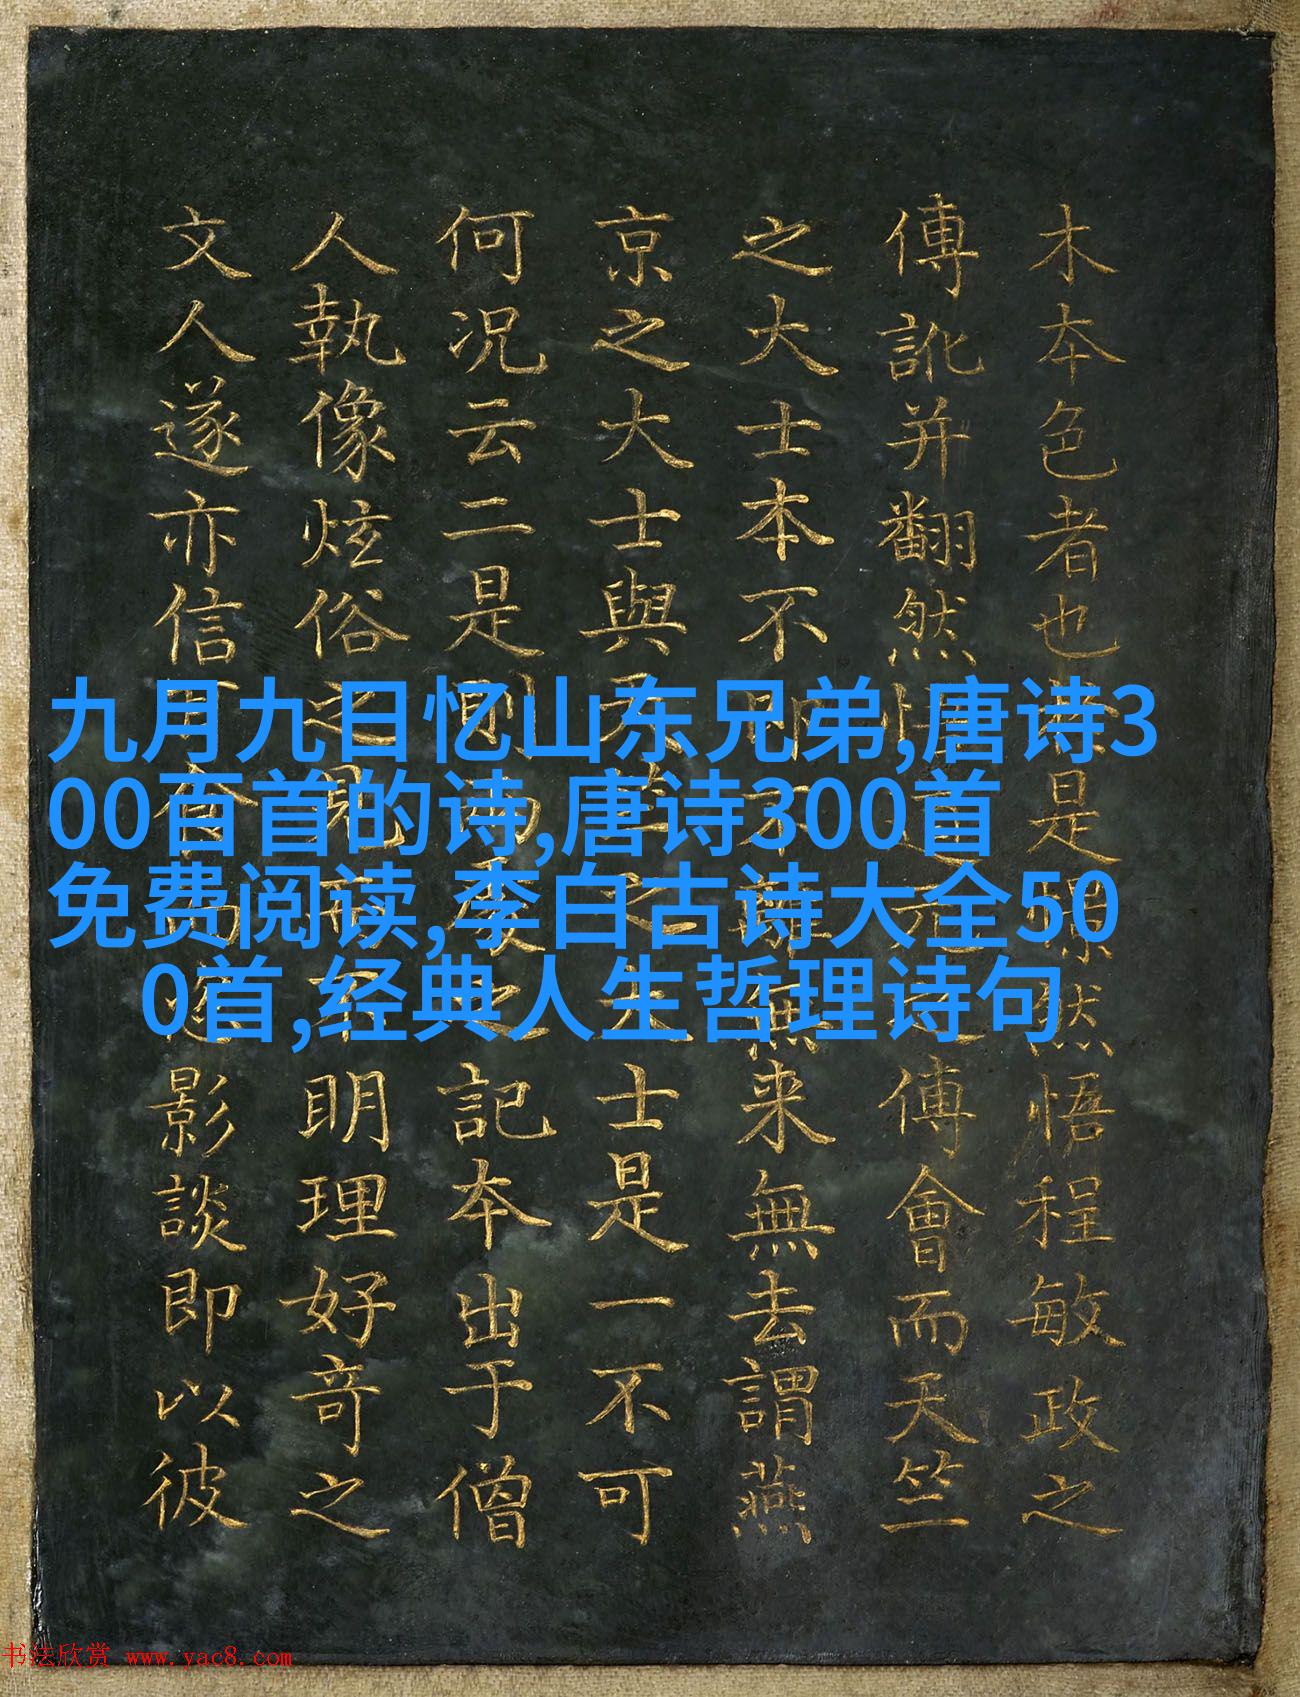 木夲色者也 是 然悟程敏政之
傅訛并翻然悟道元 之傅會而天竺
之大士本不明不離無来無去謂燕
京之大士與天竺之大士是一不可
何况云二是則兩象之記夲出于僧
人執像炫俗之見而不明理好奇之
文人遂亦信 影談即以彼
九月九日忆山东兄弟,唐诗3
00百首的诗,唐诗300首
免费阅读,李白古诗大全50
0首,经典人生哲理诗句
书法欣赏 www.yac8.com